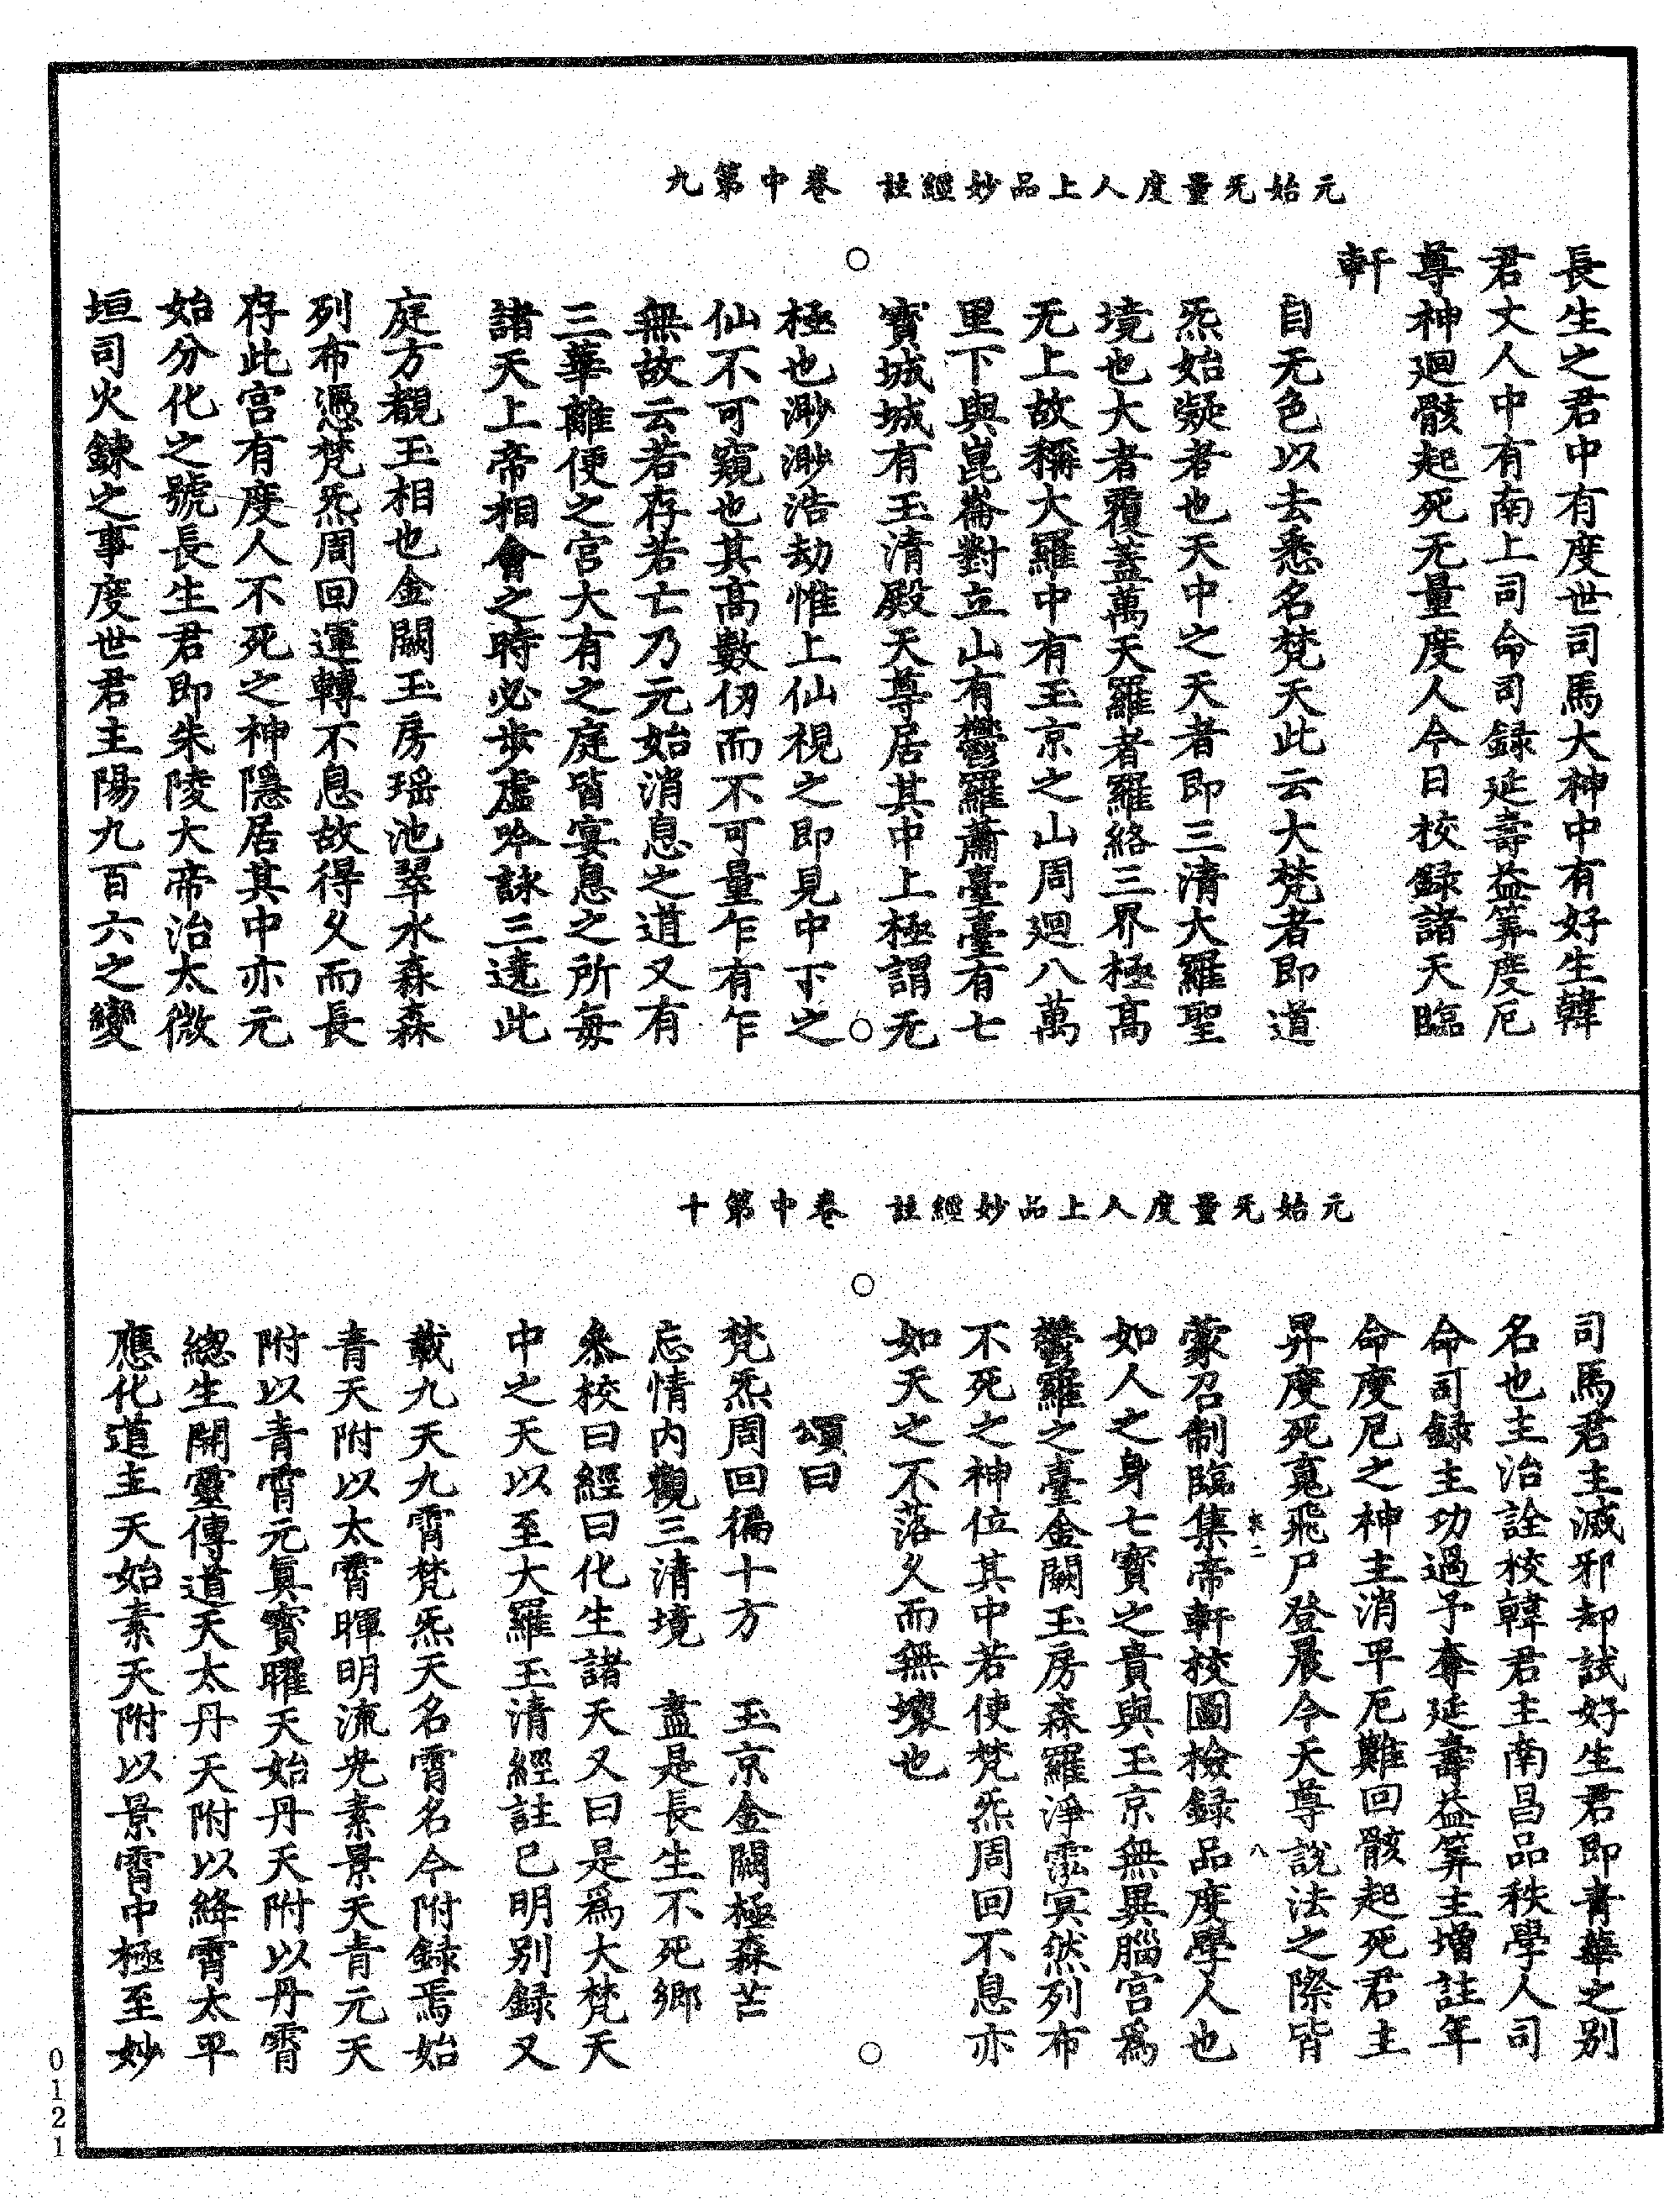 元始无量度人上品妙經註　卷中第九
長生之君中有度世司馬大神中有好生韓
君丈人中有南上司命司録延壽益筭度厄
尊神廻骸起死无量度人今日校録諸天臨
軒
自无色以去悉名梵天此云大梵者即道
炁始凝者也天中之天者即三清大羅聖
境也大者覆蓋萬天羅者羅絡三界極高
无上故稱大羅中有玉京之山周廻八萬
里下與崑崙對立山有鬱羅蕭臺臺有七
寶城城有玉清殿天尊居其中上極謂无
極也渺渺浩劫惟上仙視之即見中下之
仙不可窺也其高數仞而不可量乍有乍
無故云若存若亡乃元始消息之道又有
三華離便之宫大有之庭皆宴息之所每
諸天上帝相會之時必步虚吟詠三遶此
庭方覩玉相也金闕玉房瑶池翠水森森
列布憑梵炁周回運轉不息故得久而長
存此宫有度人不死之神隱居其中亦元
始分化之號長生君即朱陵大帝治太微
垣司火鍊之事度世君主陽九百六之變
元始无量度人上品妙經註　卷中第十
司馬君主滅邪却試好生君即青華之别
名也主治詮校韓君主南昌品秩學人司
命司録主功過予奪延壽益筭主增註年
命度厄之神主消平厄難回骸起死君主
昇度死魂飛尸登晨今天尊說法之際皆
蒙召制臨集帝軒校圖檢録品度學人也
如人之身七寶之貴與玉京無異腦宫爲
鬱羅之臺金闕玉房森羅淨泓冥然列布
不死之神位其中若使梵炁周回不息亦
如天之不落久而無壞也
頌曰
梵炁周回徧十方　玉京金闕極森芒
忘情内觀三清境　盡是長生不死鄉
叅校曰經曰化生諸天又曰是爲大梵天
中之天以至大羅玉清經註已明别録又
載九天九霄梵炁天名霄名今附録焉始
青天附以太霄暉明流光素景天青元天
附以青霄元真寶曜天始丹天附以丹霄
總生開靈傳道天太丹天附以絳霄太平
應化道主天始素天附以景霄中極至妙
0121